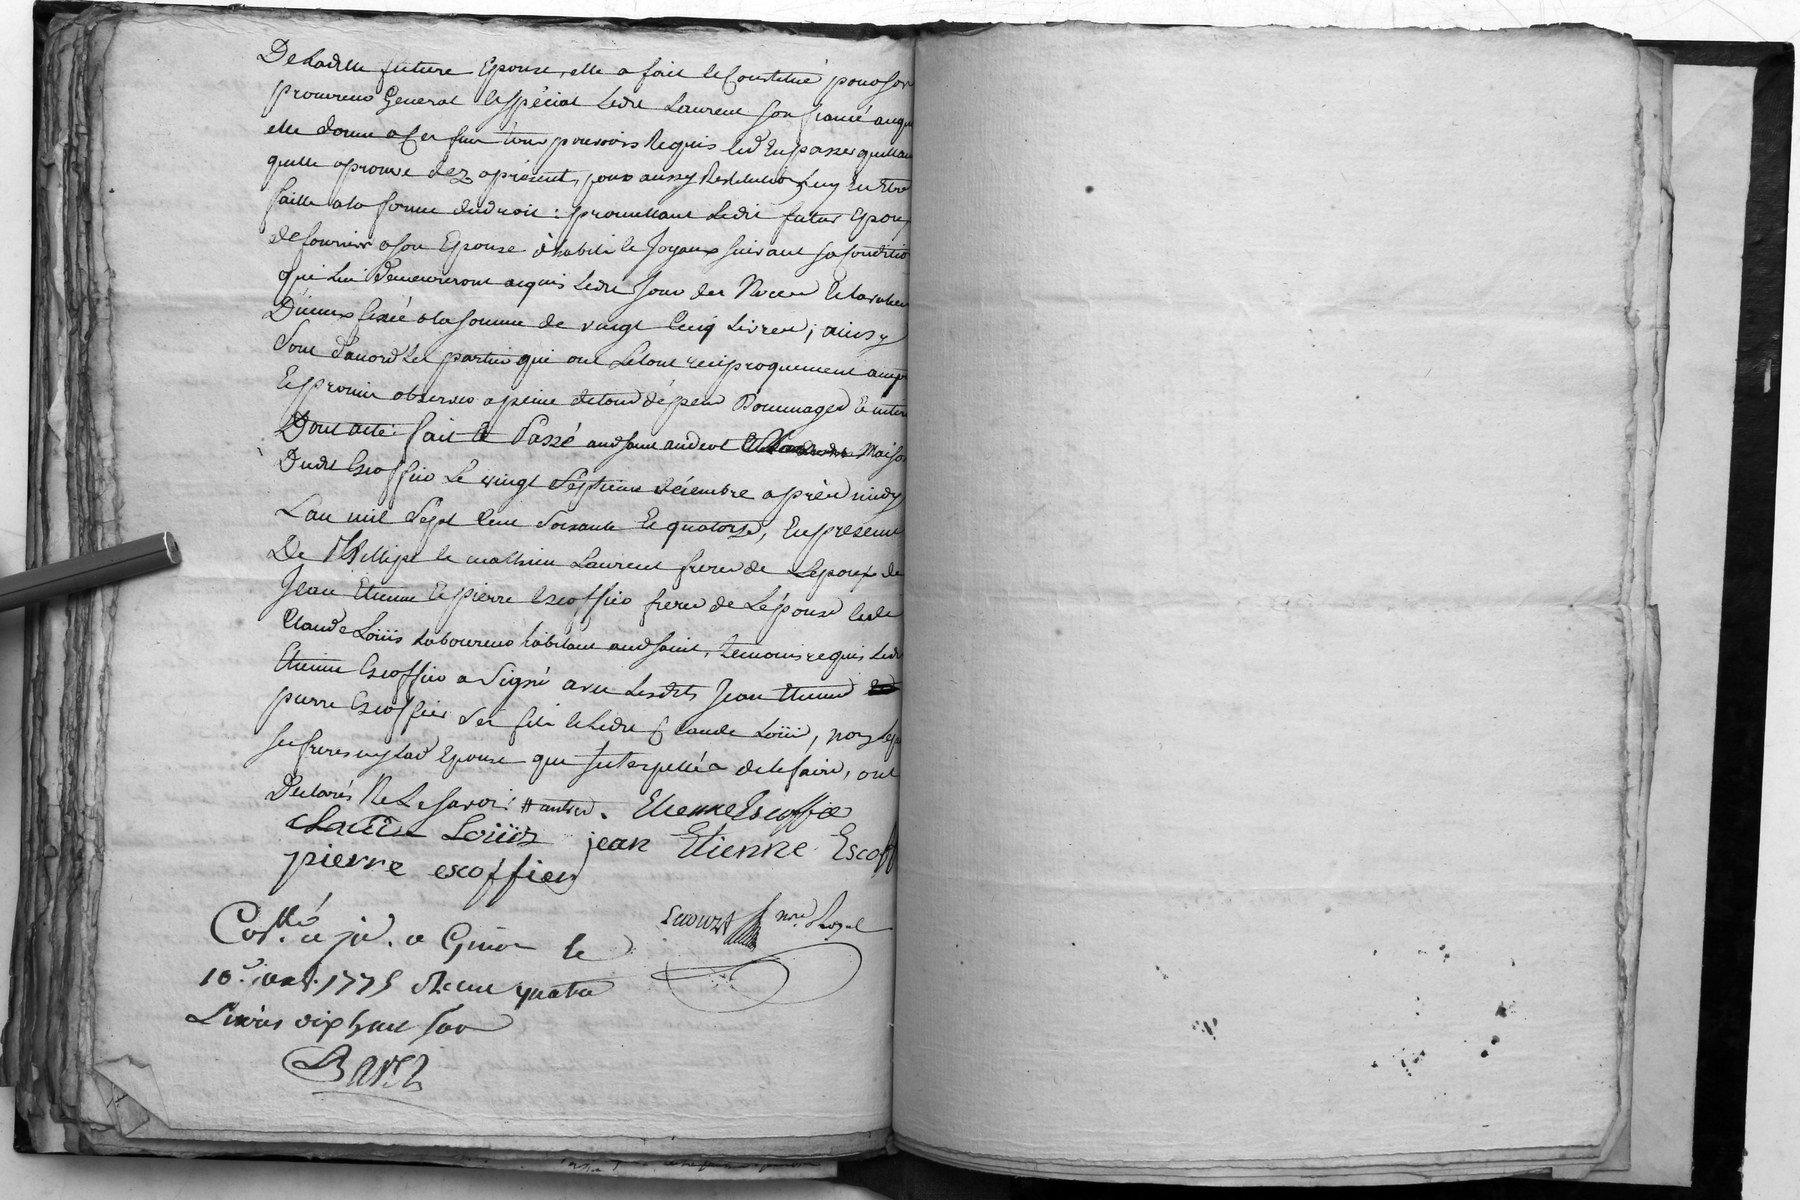 De Ladtte future Epouse, elle a fait & Constitué pour son
procureur General & spécial Ledit Laurent son fiancé auquel
elle donne a ces fins tous pouvoirs Requis & d'En passer quittance
quelle aprouve dez aprésent, pour aussy Restitution luy En Etre
faitte a la forme du droit : promettant Ledit futur Epoux
de fournir a son Epouse d'habits & Joyaux suivant sa condition
qui Lui demeureront acquis Ledit Jour des Noces &
D'iceux fixée a la somme de vingt Cinq Livres ; ainsy
Sont d'acord Les parties qui ont Letout reciproquement accepté
Et promis observer a peine de tous dépens Dommages & interets
Dont acte : fait & Passé aud saint andeol Maison
Dudit Escoffier Le vingt Septieme décembre après midy
L'an mil Sept Cent Soixante & quatorze, En presence
De Phillipe & mathieu Laurent freres de L'epoux de
Jean Etienne & pierre Escoffier freres de L'épouse & de
Claude Loüis Laboureur habitant aud saint, temoins requis Ledit
Etienne Escoffier a Signé avec Lesdits Jean Etienne
pierre Escoffier Ses fils & Ledit Claude Loüis, non
ses freres ny Lad Epouse que Interpellés de le faire, ont
Declarés Ne Le Savoir # autres. Etienne Escoffie
claude Loüis jean Etienne Escoff
pierre escoffier
nre. Royal
Collé. le
10e. 1775 Receu quatre
Livres dix huit sols